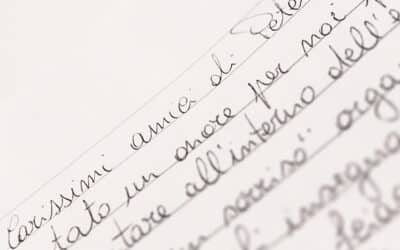 Carissimi amici di Pete
tato un onore per noi
tare all'interno dell'e
sorriso" orga
di insegna